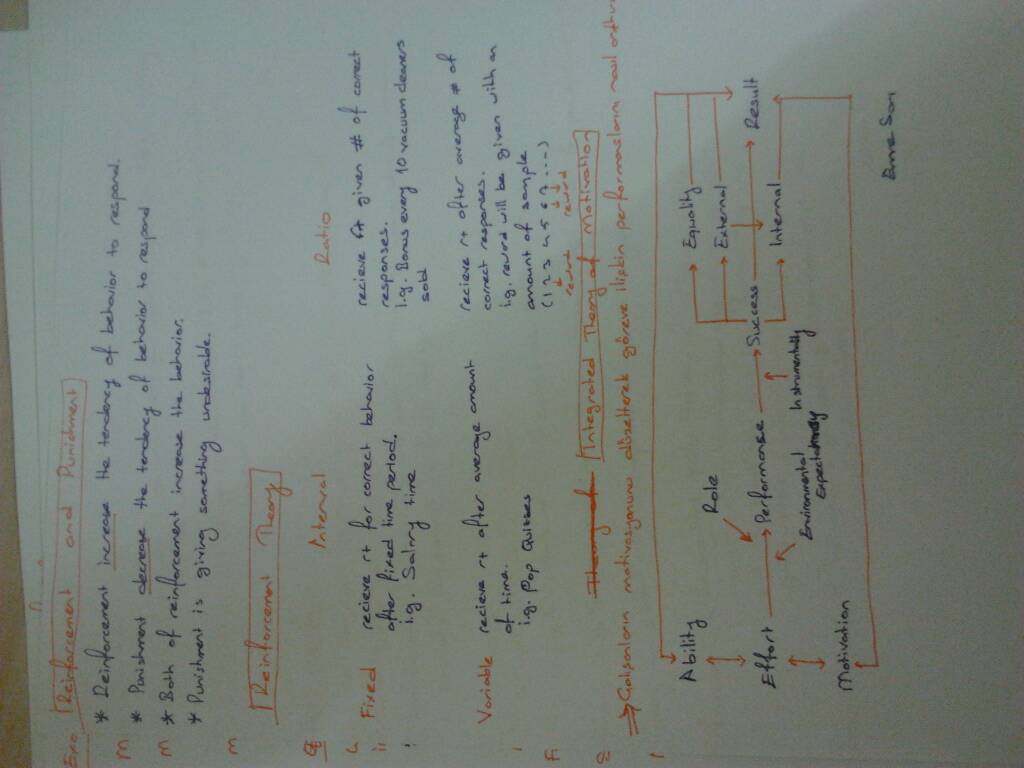 Reinforcement and Punishment
* Reinforcement increase the tendency of behavior to respond.
* Punishment decrease the tendency of behavior to respond
* Both of reinforcement increase the behavior.
* Punishment is giving something undesirable.
Reinforcement Theory
Interval
Ratio
Fixed
recieve rt for correct behavior
after fixed time period.
i.g. Salary time
recieve rt given # of correct
responses.
i.g. Bonus every 10 vacuum cleaners
sold
Variable
recieve rt after average amount
of time.
i.g. Pop Quizzes
recieve rt after average # of
correct responses.
i.g. reward will be given with an
amount of sample
(1 2 3 4 5 6 7 ...)
reward reward
Integrated Theory of Motivation
motivasyonunu göreve ilişkin performansların
Ability
Effort
Motivation
Role
Performanse
Environmental
Instrumentally
Success
Equality
External
Internal
Result
Emre Sarı